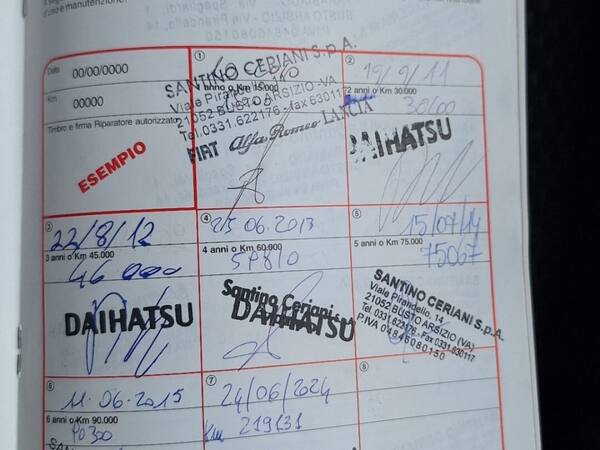 d'uso e manutenzione.
BUSTO ARSIZIO
Data
00/00/0000
Km
00000
Timbro e firma Riparatore autorizzato
ESEMPIO
1
1 anno o Km 15.000
SANTINO CERIANI S.p.A.
Viale Pirandello
21052 BUSTO ARSIZIO - VA
Tel. 0331.622176 - fax
FIAT Alfa Romeo LANCIA
2
19/9/11
2 anni o Km 30.000
DAIHATSU
3
22/8/12
3 anni o Km 45.000
46 000
DAIHATSU
4
06.2013
4 anni o Km 60.000
Santino Ceriani
DAIHATSU
5
15/07/14
5 anni o Km 75.000
75067
SANTINO CERIANI S.p.A.
Viale Pirandello, 14
21052 BUSTO ARSIZIO (VA)
Tel. 0331.622176 - Fax 0331.630117
P.IVA 04846080150
6
11.06.2015
6 anni o Km 90.000
7
24/06/2024
Km 219131
8